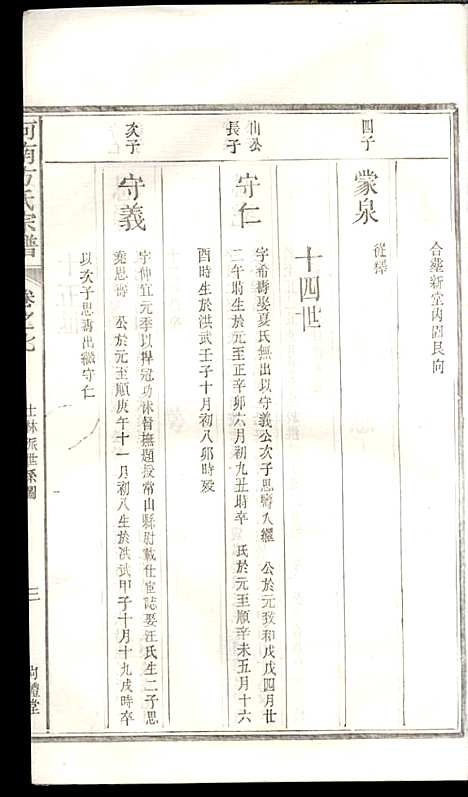 合塟新堂丙園艮向
四子
蒙泉
從釋
十四世
山公
長子
守仁
字希壽娶夏氏無出以守義公次子思疇入繼　公於元致和戊戌四月廿
二午時生於元至正辛卯六月初九丑時卒　氏於元至順辛未五月十六
酉時生於洪武壬子十月初八卯時歿
次子
守義
字仲宜元季以捍冦功休督撫題授常山縣尉載仕宦誌娶汪氏生二子思
齊思疇　公於元至順庚午十一月初八生於洪武甲子十月十九戌時卒
以次子思疇出繼守仁
河南方氏宗譜
卷之七
士林派世系圖
三